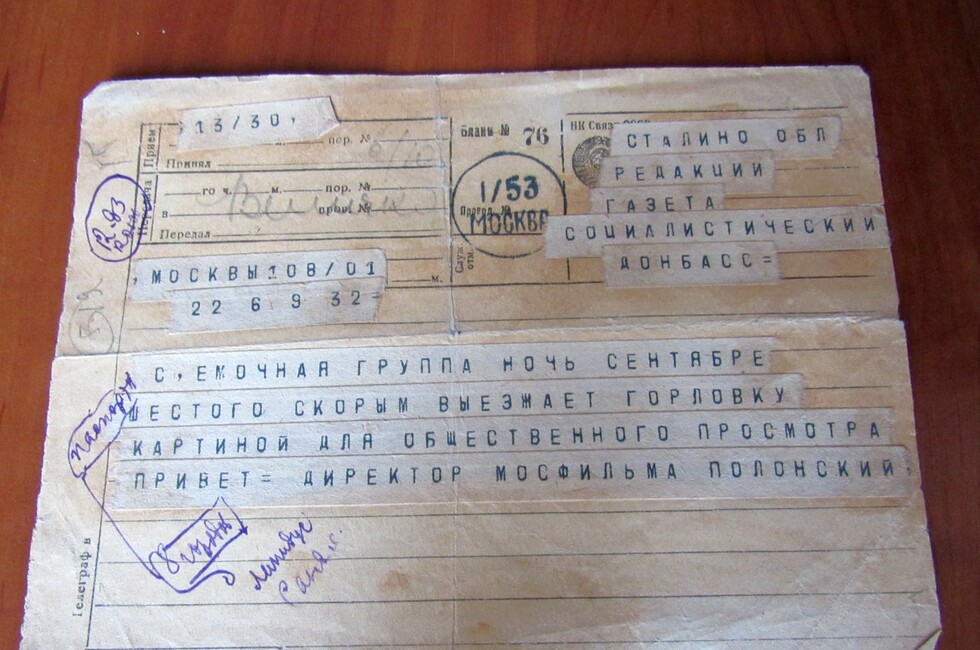 13/30,
Прием
пор. №
Принял
Передача
го ч. м. пор. №
в пров. №
Передал
бланк № 76
1/53
Провод. №
МОСКВА
Служ. отм.
НК Связи СССР
СТАЛИНО ОБЛ
РЕДАКЦИИ
ГАЗЕТА
СОЦИАЛИСТИЧЕСКИЙ
ДОНБАСС=
,МОСКВЫ108/01
м.
22 6 9 32=
С,ЕМОЧНАЯ ГРУППА НОЧЬ СЕНТЯБРЕ
ШЕСТОГО СКОРЫМ ВЫЕЗЖАЕТ ГОРЛОВКУ
КАРТИНОЙ ДЛЯ ОБЩЕСТВЕННОГО ПРОСМОТРА
ПРИВЕТ= ДИРЕКТОР МОСФИЛЬМА ПОЛОНСКИЙ,
Телеграф в